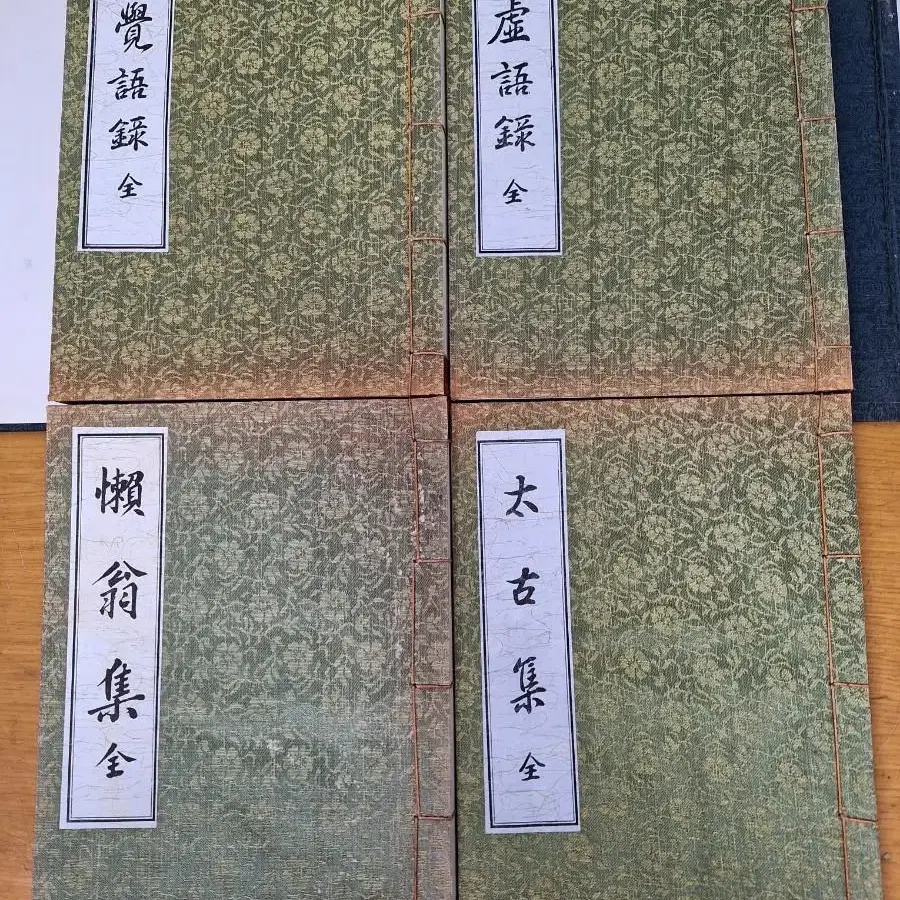 覺語錄 全
虛語錄 全
懶翁集 全
太古集 全